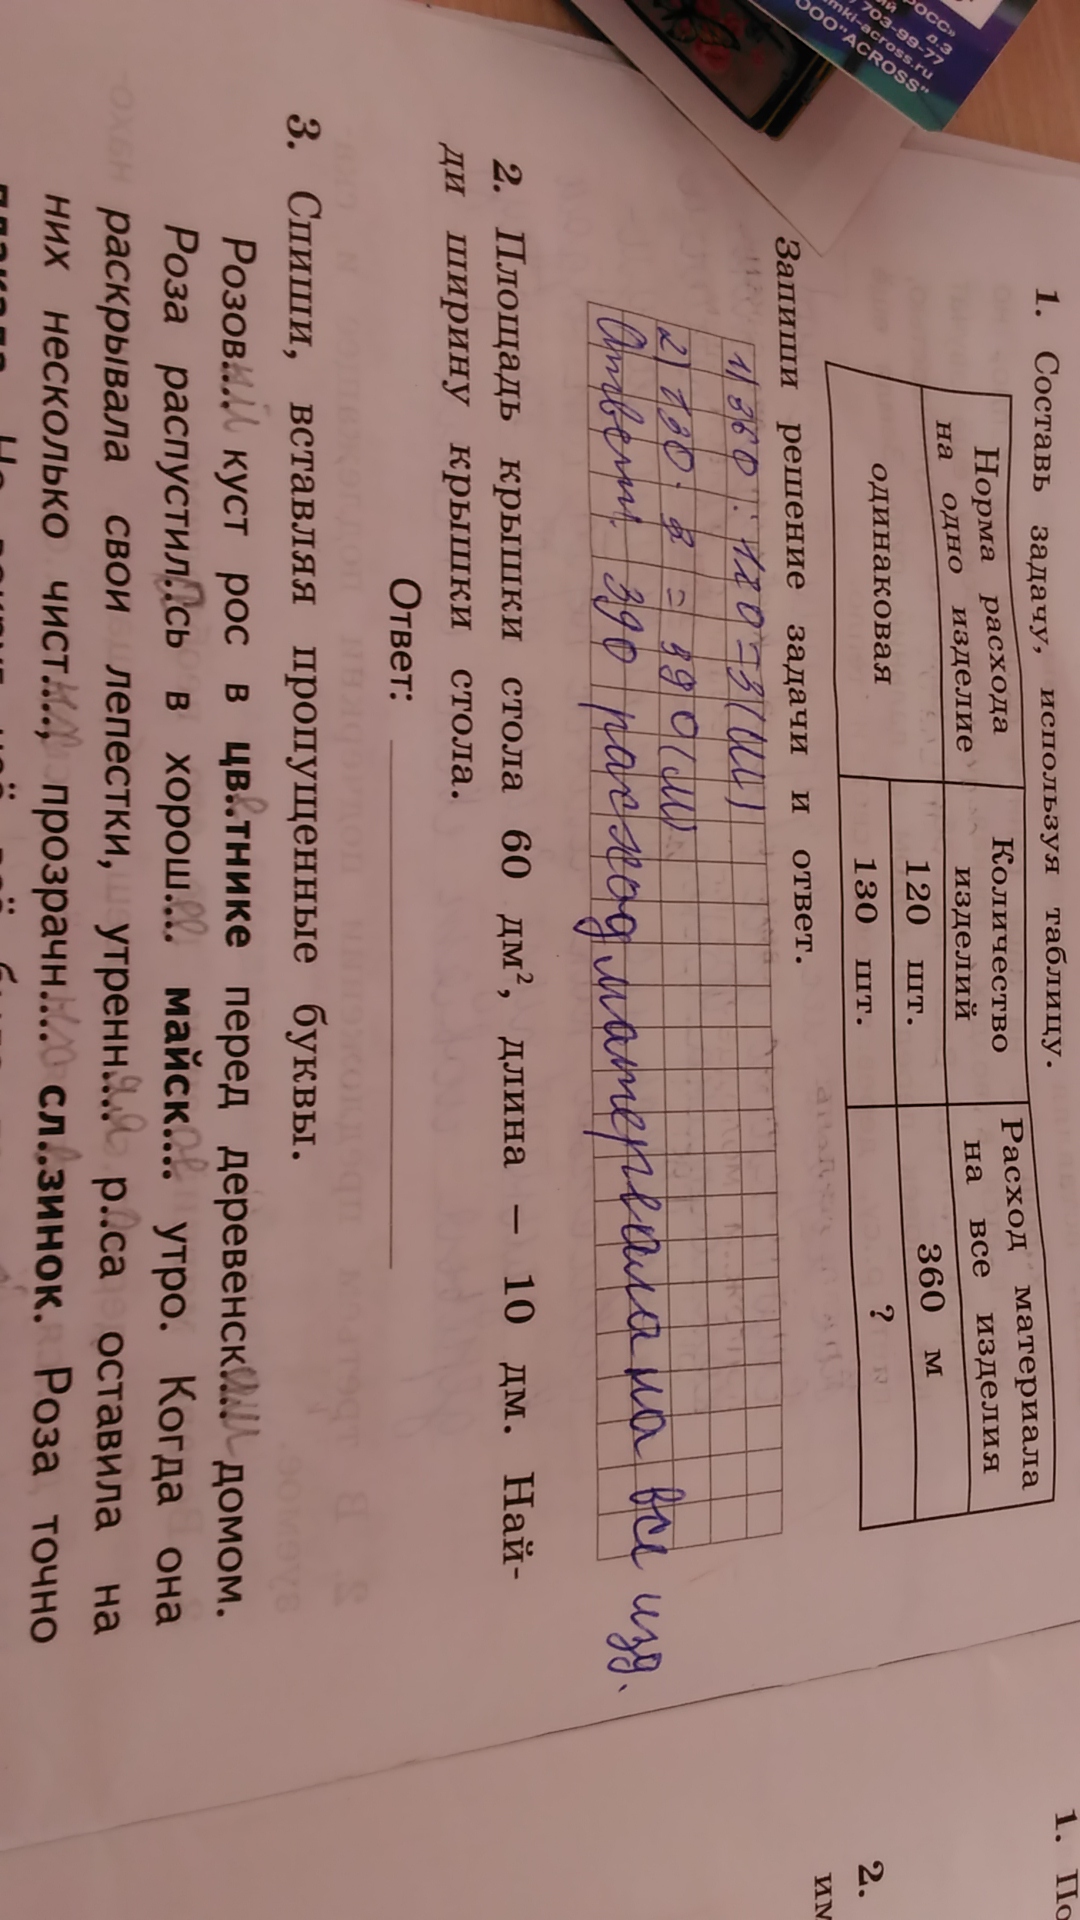 РОСС»
д.3
703-99-77
mki-across.ru
ООО"ACROSS"
1. Составь задачу, используя таблицу.
Норма расхода на одно изделие
Количество изделий
Расход материала на все изделия
одинаковая
120 шт.
360 м
130 шт.
?
Запиши решение задачи и ответ.
1) 360 : 120 = 3 (м)
2) 130 · 3 = 390 (м)
Ответ: 390 расход материала на все изд.
2. Площадь крышки стола 60 дм², длина – 10 дм. Най-
ди ширину крышки стола.
Ответ:
3. Спиши, вставляя пропущенные буквы.
Розов....ый куст рос в цв..тнике перед деревенск....им домом.
Роза распустил..сь в хорош.... майск.... утро. Когда она
раскрывала свои лепестки, утренн.... р..са оставила на
них несколько чист...., прозрачн.... сл..зинок. Роза точно
1. По
2.
им